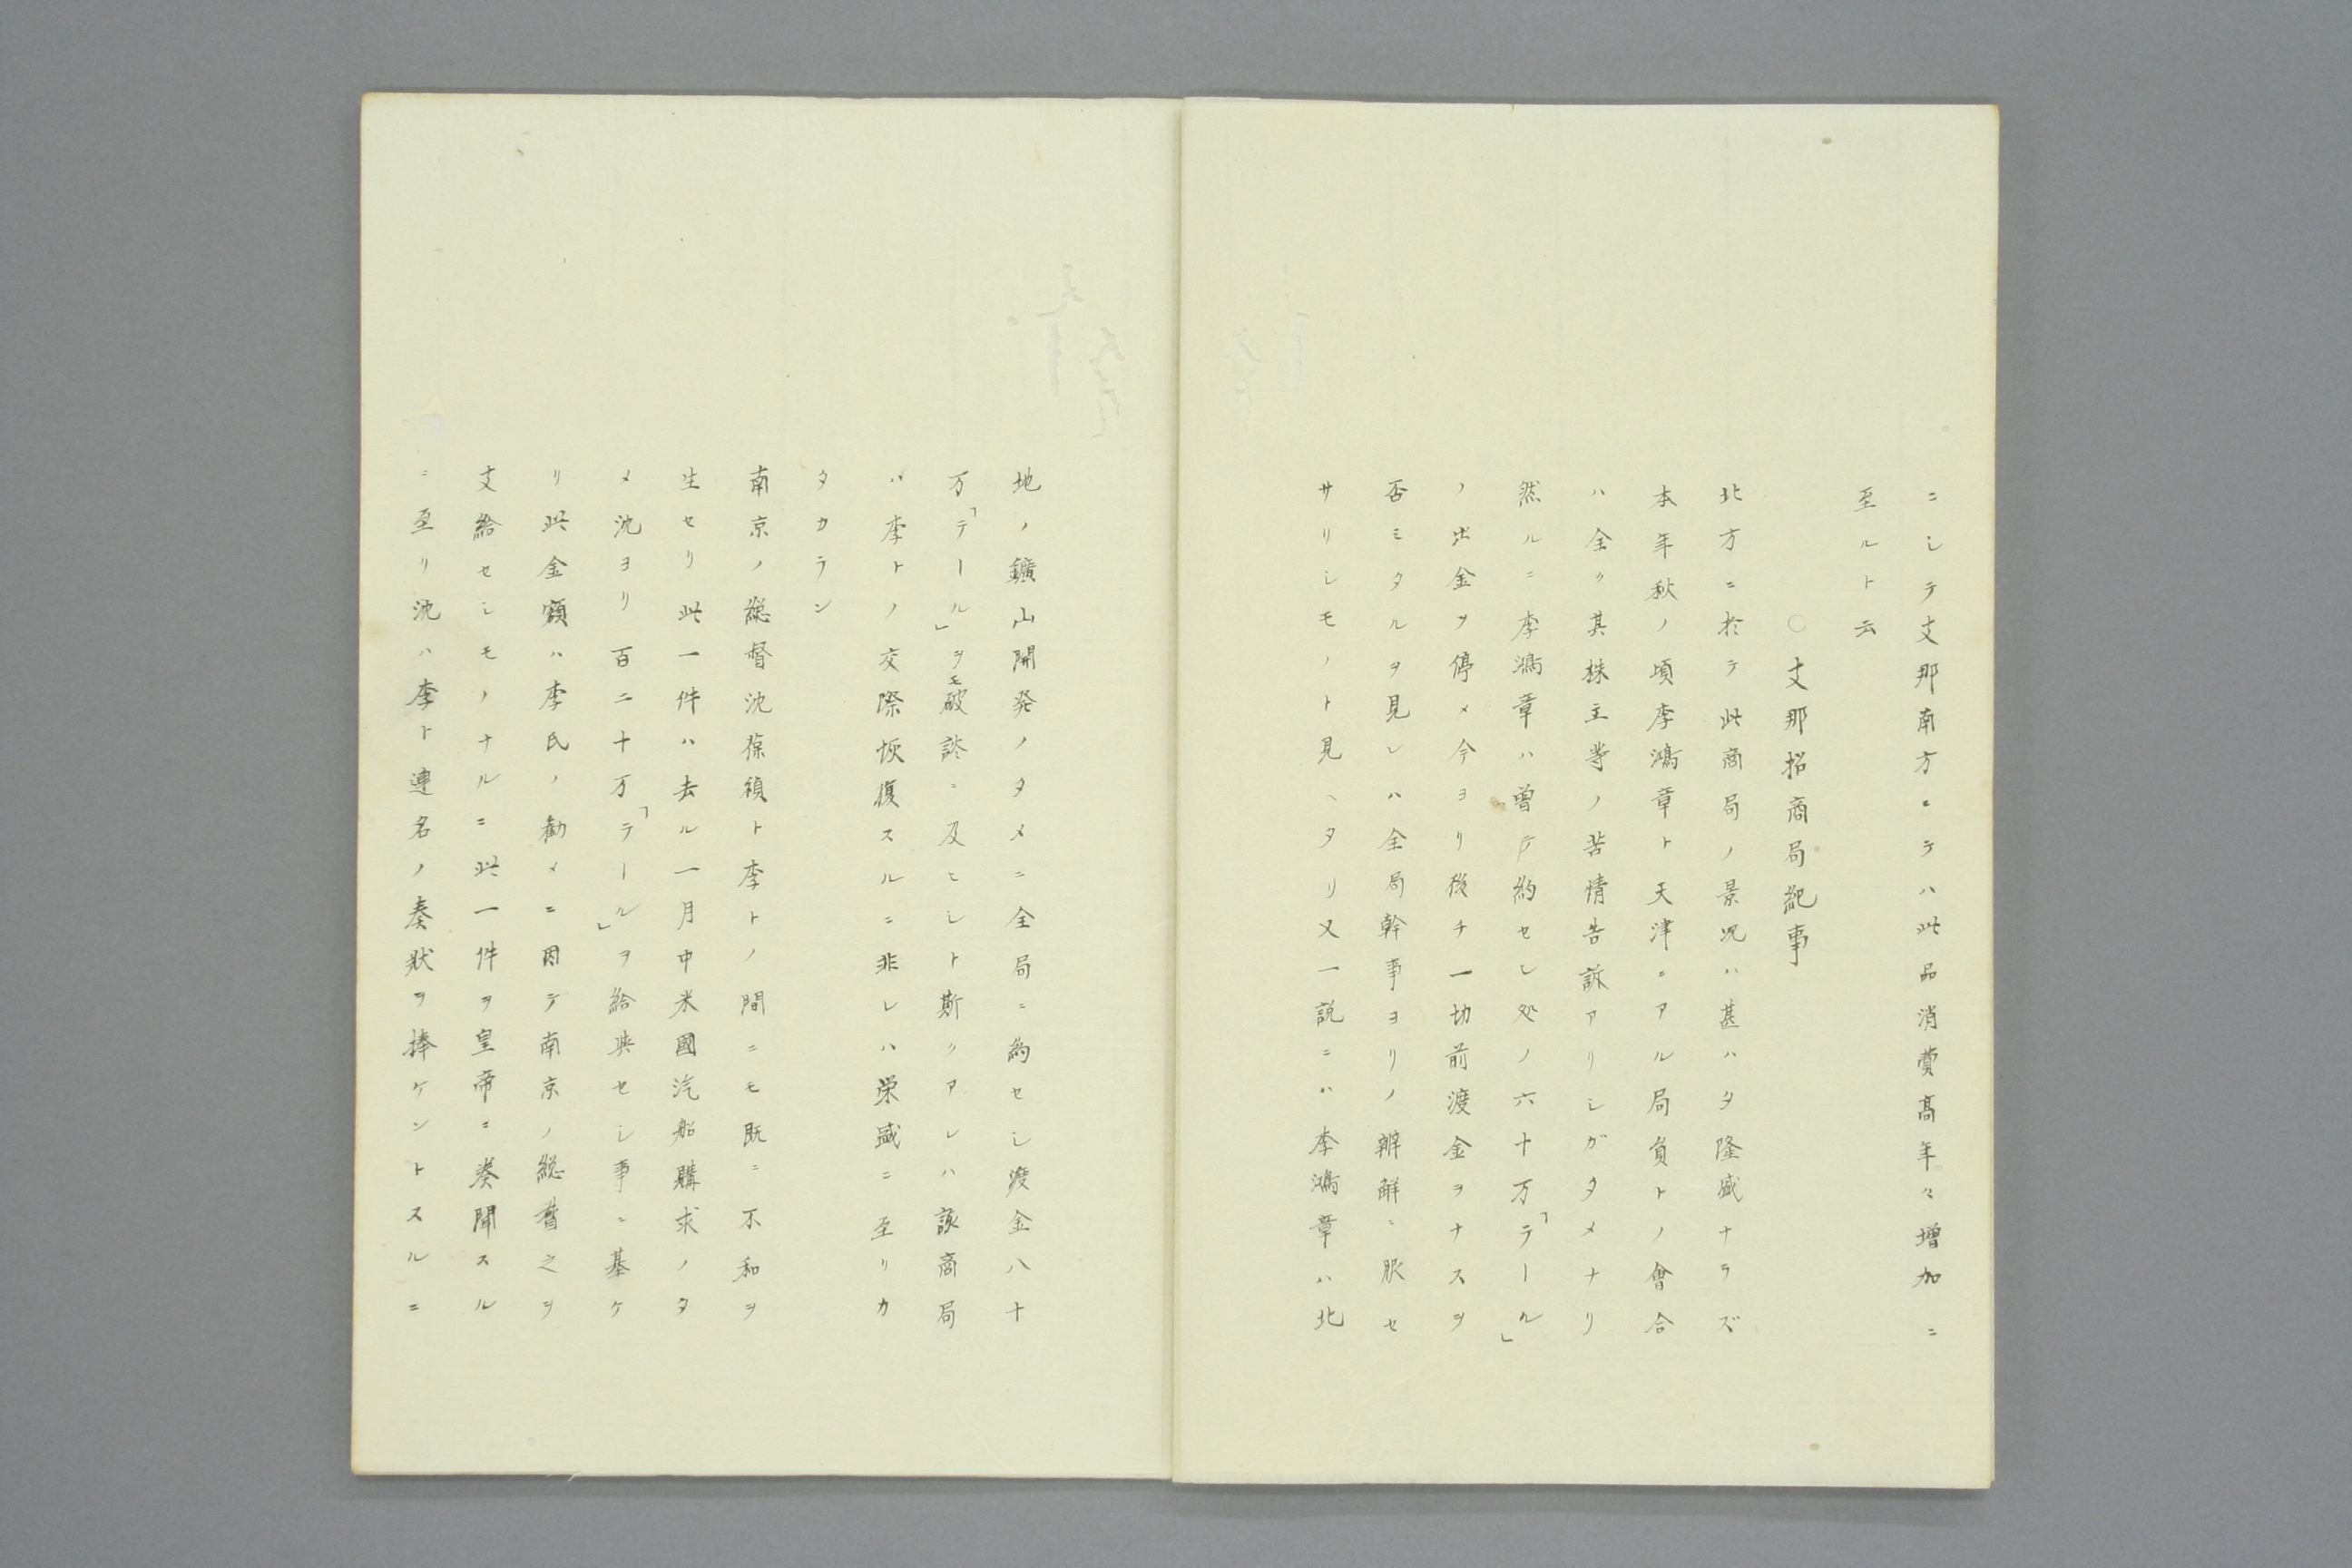 ニシテ支那南方ニテハ此品消費髙年々増加ニ
至ルト云
○支那招商局紀事
北方ニ於テ此商局ノ景況ハ甚ハタ隆盛ナラズ
本年秋ノ頃李鴻章ト天津ニアル局負トノ會合
ハ全ク其株主等ノ苦情告訴アリシガタメナリ
然ルニ李鴻章ハ曽テ約セシ処ノ六十万「テール」
ノ出金ヲ停メ今ヨリ後チ一切前渡金ヲナスヲ
否ミタルヲ見レハ全局幹事ヨリノ辨解ニ服セ
サリシモノト見ヘタリ又一説ニハ李鴻章ハ北
地ノ鑛山開発ノタメニ全局ニ約セシ渡金八十
万「テール」ヲモ破談ニ及ヒシト斯クアレハ該商局
ハ李トノ交際恢復スルニ非レハ栄盛ニ至リカ
タカラン
南京ノ総督沈葆禎ト李トノ間ニモ既ニ不和ヲ
生セリ此一件ハ去ル一月中米國汽船購求ノタ
メ沈ヨリ百二十万「テール」ヲ給與セシ事ニ基ケ
リ此金額ハ李氏ノ勧メニ因テ南京ノ総督之ヲ
支給セシモノナルニ此一件ヲ皇帝ニ奏聞スル
ニ至リ沈ハ李ト連名ノ奏狀ヲ捧ケントスルニ